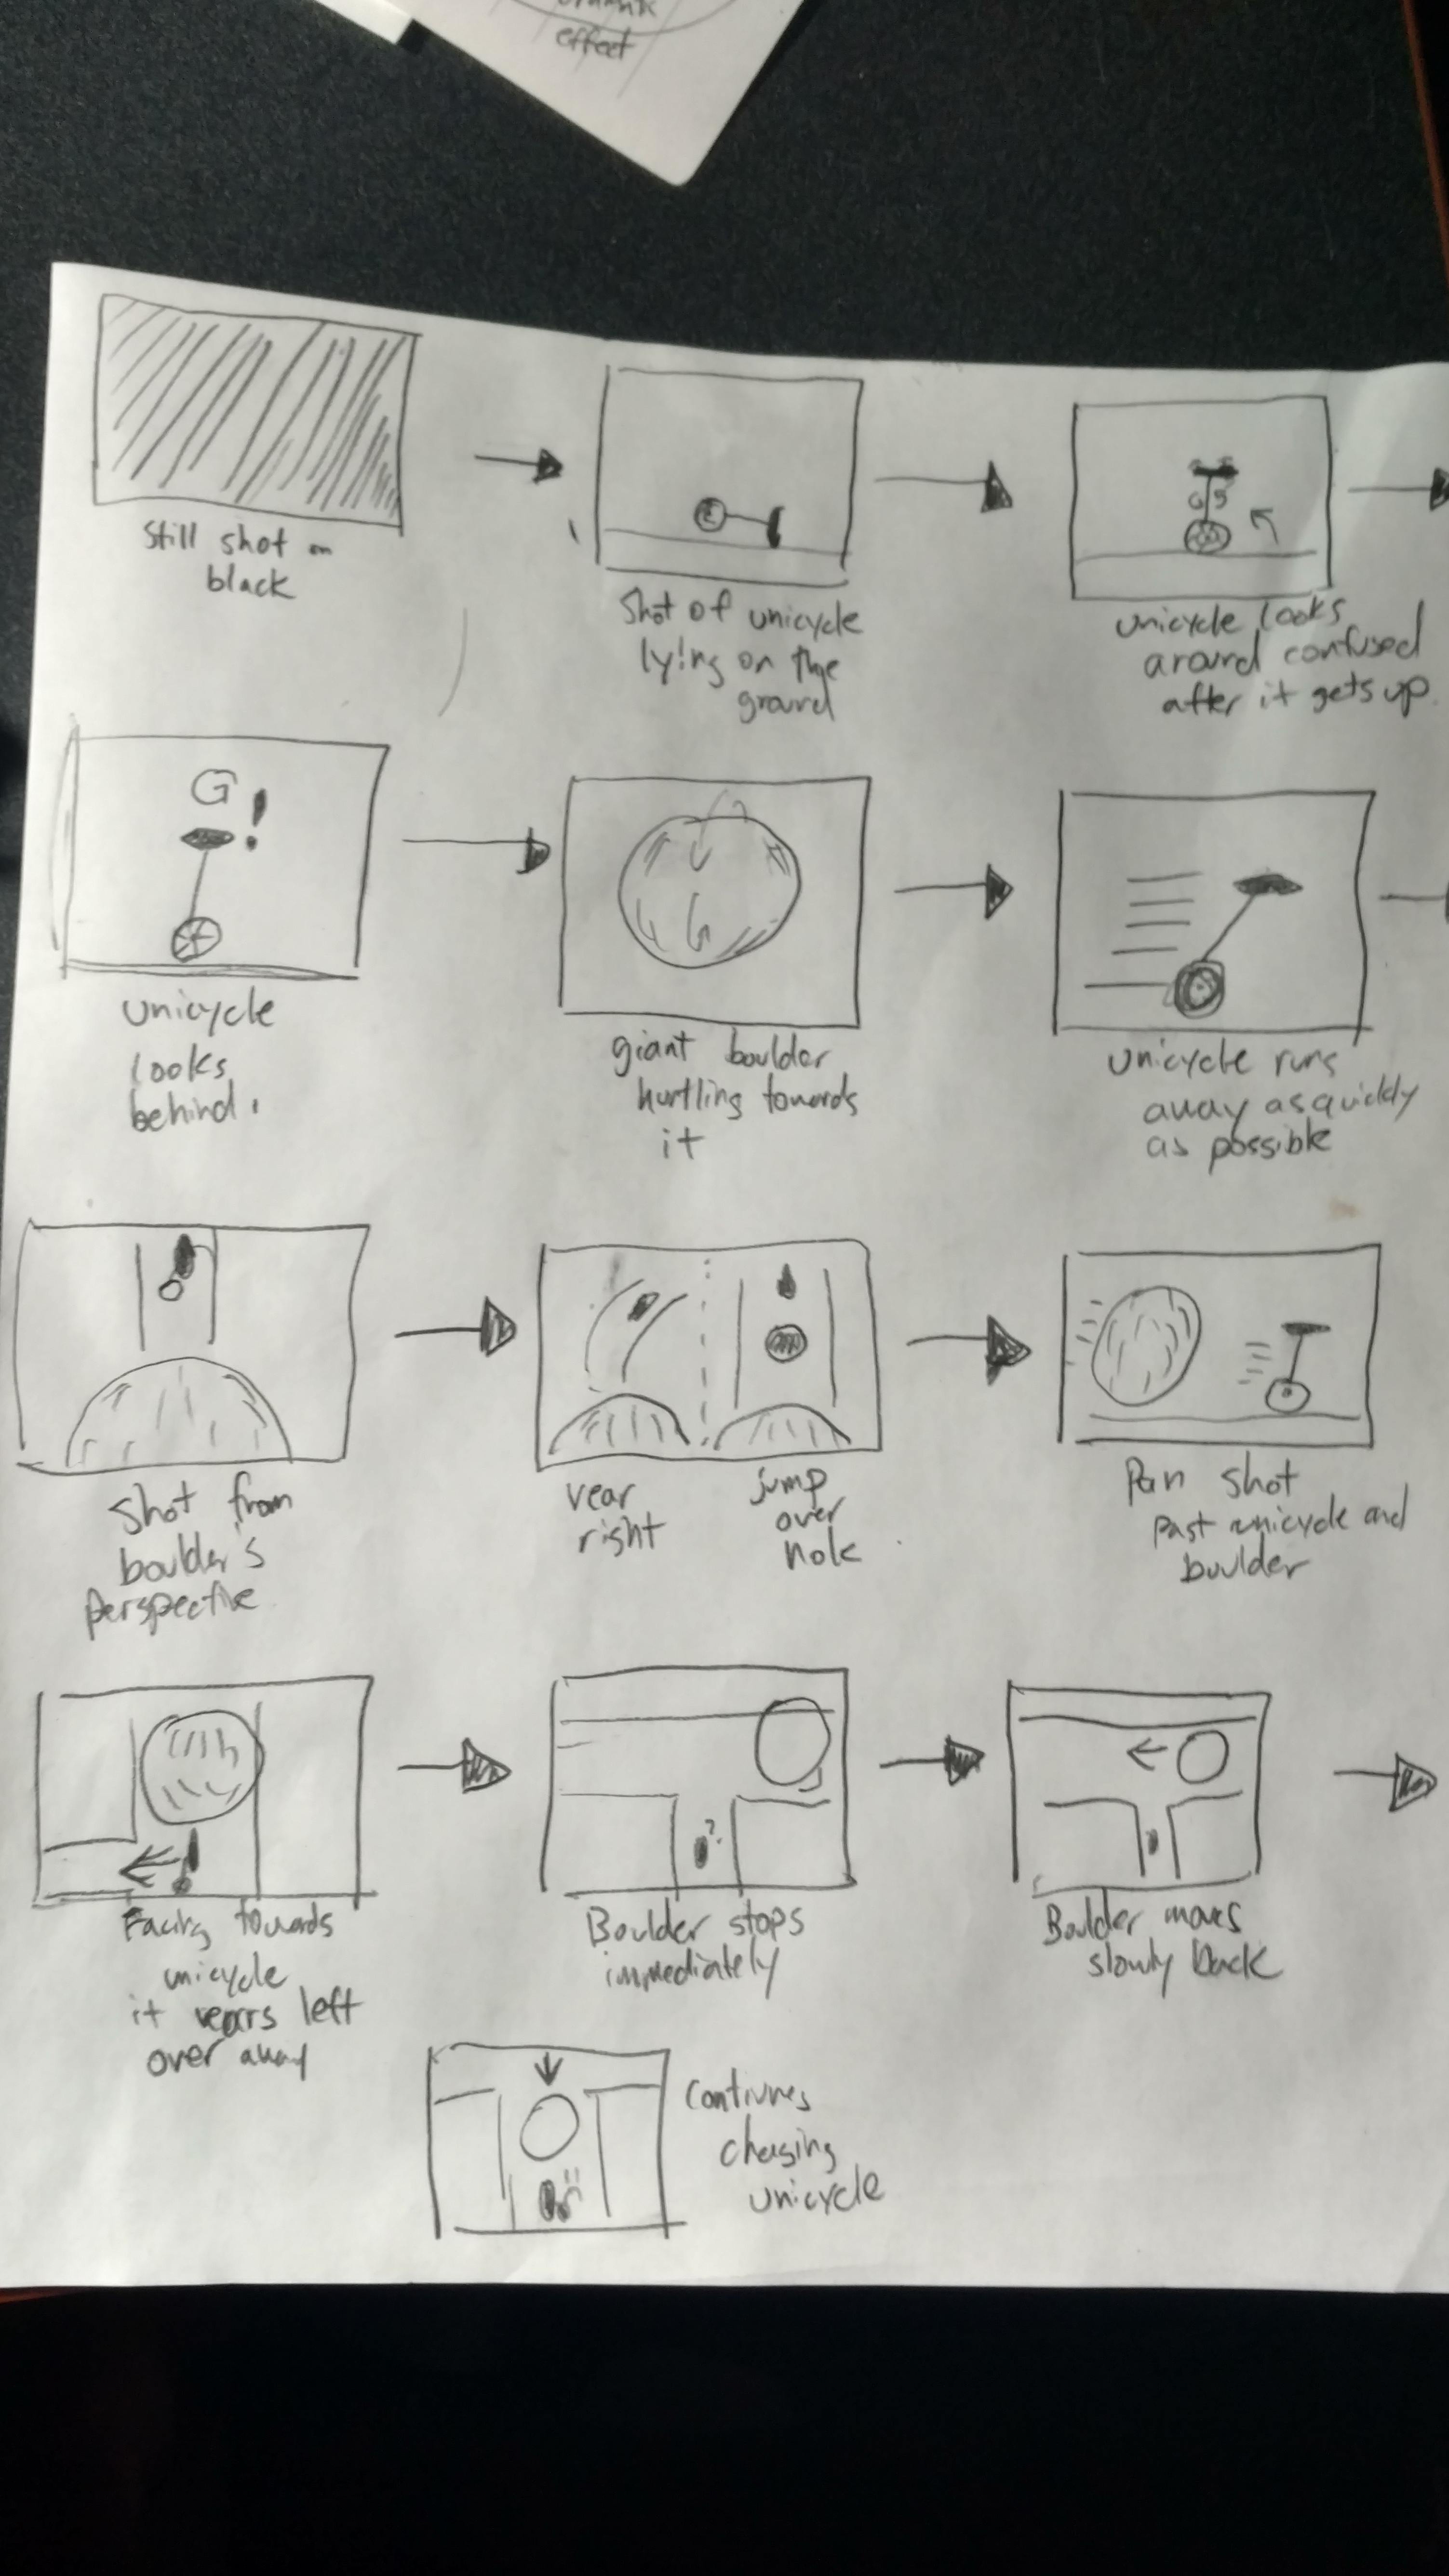 effect
Still shot on
black
Shot of unicycle
lying on the
ground
unicycle looks
around confused
after it gets up.
!
unicycle
looks
behind.
giant boulder
hurtling towards
it
unicycle runs
away as quickly
as possible
Shot from
boulder's
perspective
vear
right
jump
over
hole
Pan shot
past unicycle and
boulder
Facing towards
unicycle
it vears left
over away
?
Boulder stops
immediately
Boulder moves
slowly back
Continues
chasing
unicycle